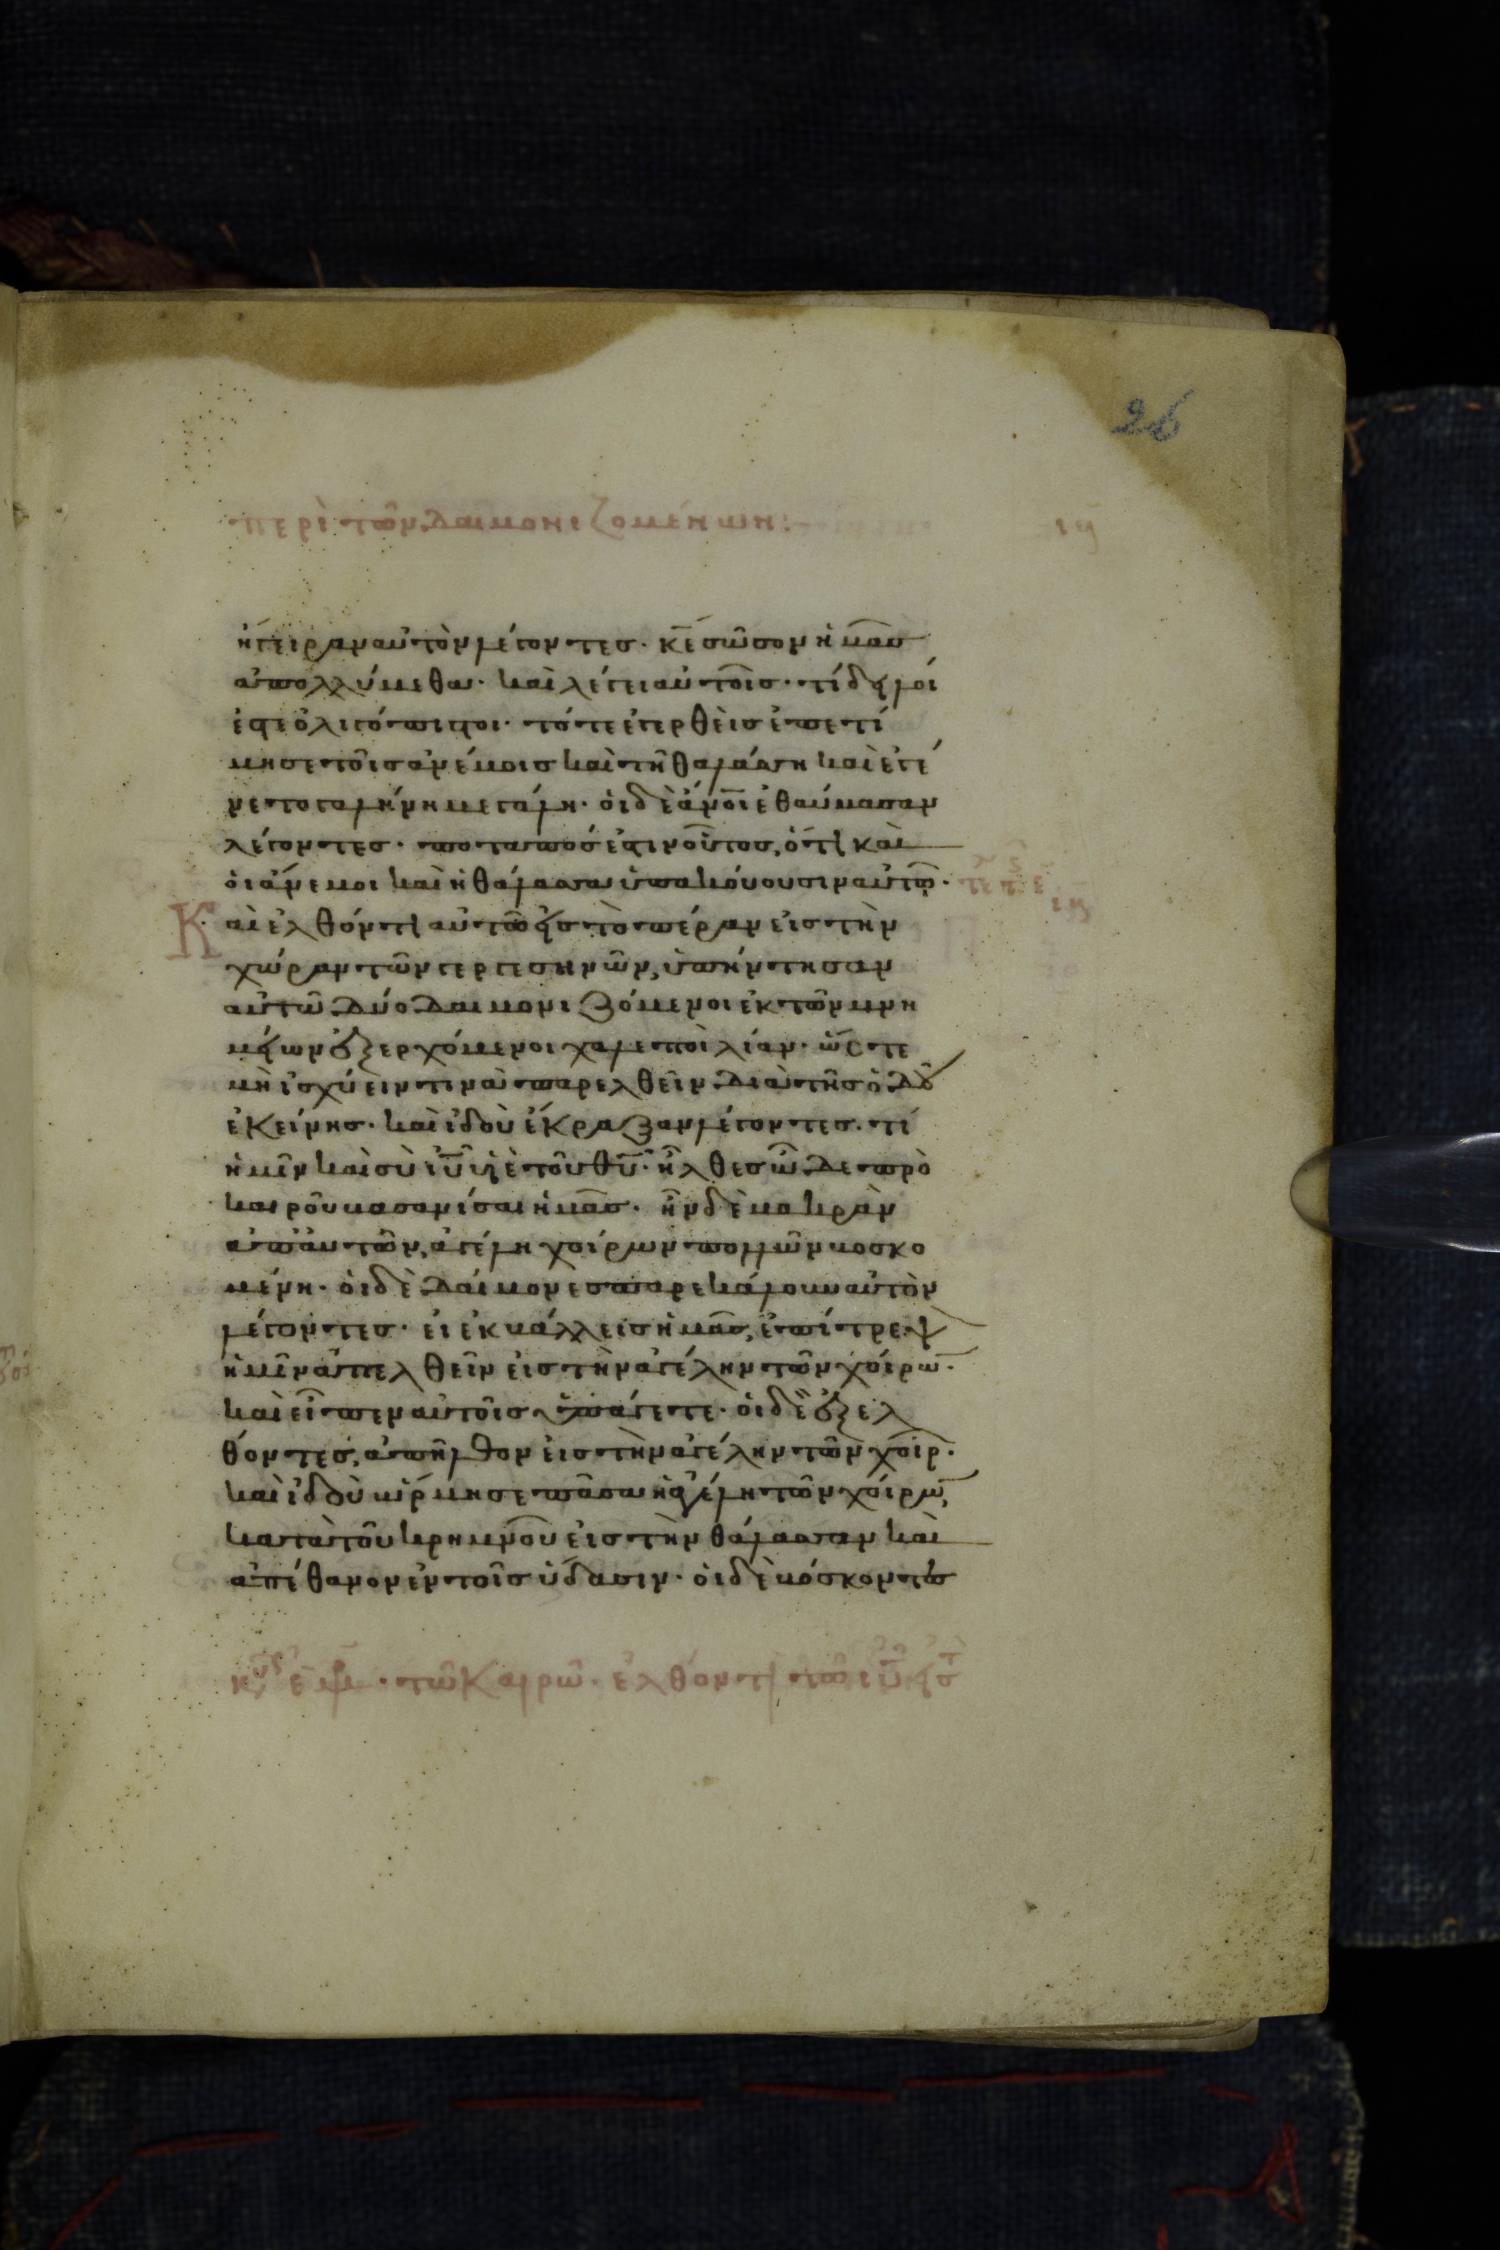 26
περὶ τῶν δαιμονιζομένων:
ἤγειραν αὐτὸν λέγοντες· κ̅ε σῶσον ἡμᾶς
ἀπολλύμεθα· καὶ λέγει αὐτοῖς· τί δειλοί
ἐστε ὀλιγόπιστοι· τότε ἐγερθεὶς ἐπετί
μησε τοῖς ἀνέμοις καὶ τῆ θαλάσση καὶ ἐγέ
νετο γαλήνη μεγάλη· οἱ δὲ ἄν̅οι ἐθαύμασαν
λέγοντες· ποταπός ἐστιν οὗτος, ὅτι καὶ
οἱ ἄνεμοι καὶ ἡ θάλασσα ὑπακούουσιν αὐτῶ·
Καὶ ἐλθόντι αὐτῶ εἰς τὸ πέραν εἰς τὴν
χώραν τῶν γεργεσηνῶν, ὑπήντησαν
αὐτῶ δύο δαιμονιζόμενοι ἐκ τῶν μνη
μείων ἐξερχόμενοι χαλεποὶ λίαν· ὥστε
μὴ ἰσχύειν τινὰ παρελθεῖν διὰ τῆς ὁδοῦ
ἐκείνης· καὶ ἰδοὺ ἔκραξαν λέγοντες· τί
ἡμῖν καὶ σὺ ι̅υ υἱὲ τοῦ θ̅υ· ἦλθες ὧδε πρὸ
καιροῦ βασανίσαι ἡμᾶς· ἦν δὲ μακρὰν
ἀπ' αὐτῶν, ἀγέλη χοίρων πολλῶν βοσκο
μένη· οἱ δὲ δαίμονες παρεκάλουν αὐτὸν
λέγοντες· εἰ ἐκβάλλεις ἡμᾶς, ἐπίτρεψ
ἡμῖν ἀπελθεῖν εἰς τὴν ἀγέλην τῶν χοίρω̅·
καὶ εἶπεν αὐτοῖς ὑπάγετε· οἱ δὲ ἐξελ
θόντες, ἀπῆλθον εἰς τὴν ἀγέλην τῶν χοίρ·
καὶ ἰδοὺ ὥρμησε πᾶσα ἡ ἀγέλη τῶν χοίρω̅,
κατὰ τοῦ κρημνοῦ εἰς τὴν θάλασσαν καὶ
ἀπέθανον ἐν τοῖς ὕδασιν· οἱ δὲ βόσκοντες
τῶ καιρῶ· ἐλθόντι τῶ ι̅υ εἰς τ